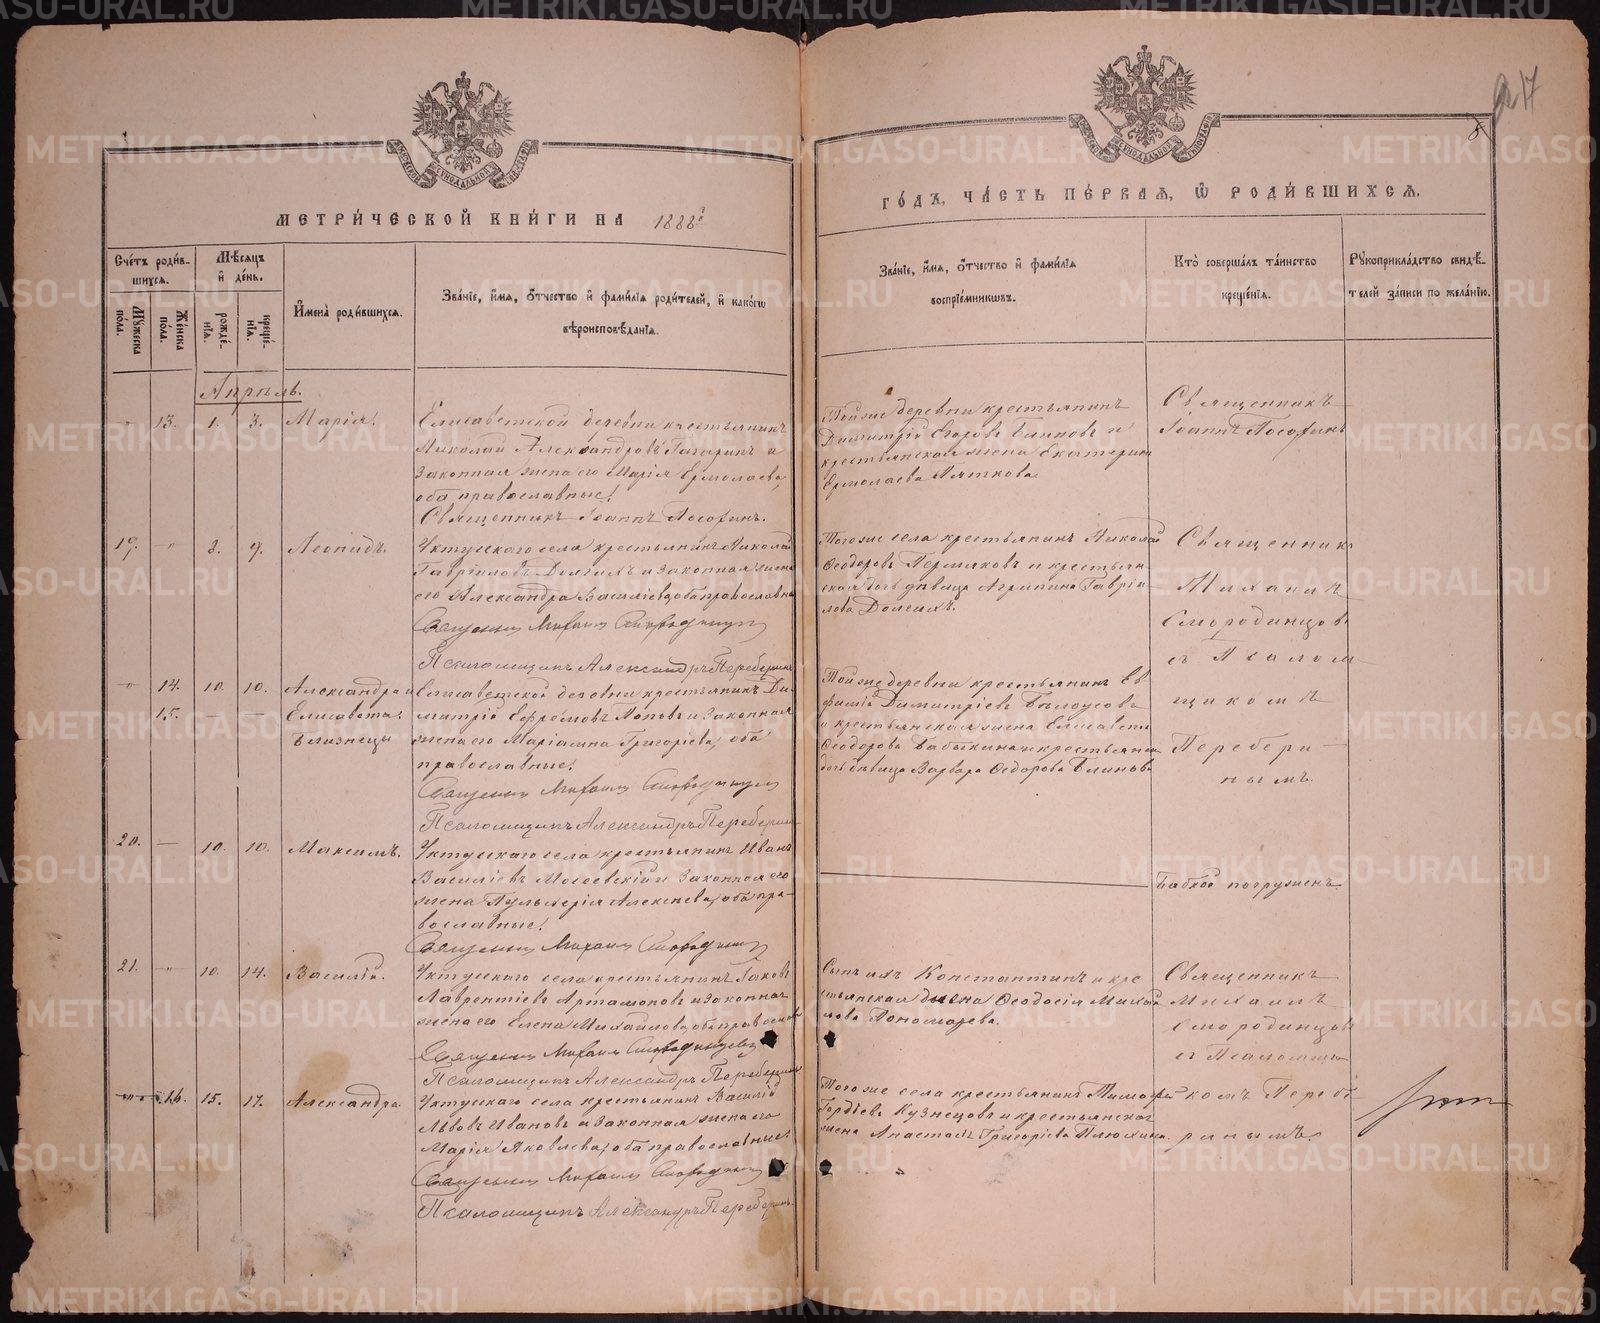 METRIKI.GASO-URAL.RU
217
8
МЕТРИ́ЧЕСКОЙ КНИ́ГИ НА 1888й
ГО́ДЪ, ЧА́СТЬ ПЕ́РВАЯ, Ѡ РОДИ́ВШИХСЯ.
Сче́тъ роди́в-
шихся.
Му́жеска по́ла.
Же́нска по́ла.
Мѣ́сяцъ и де́нь.
рожде́-
нія.
креще́-
нія.
Имена̀ роди́вшихся.
Зва́ніе, и́мя, о́тчество и фами́лія роди́телей, и како́гѡ
вѣроисповѣ́данія.
Зва́ніе, и́мя, о́тчество и фами́лія
воспріе́мниковъ.
Кто̀ соверша́лъ та́инство
креще́нія.
Рукоприкла́дство свидѣ́-
телей за́писи по жела́нію.
Апрѣль.
13. 1. 3. Марія.
Елисаветской деревни крестьянинъ
Николай Александровъ Гагаринъ и
законная жена его Марія Ермолаева,
оба православные.
Священникъ Іоаннъ
Той же деревни крестьянинъ
Димитрій Егоровъ Блиновъ и
крестьянская жена Екатерина
Ермолаева Пяткова
Священникъ
Іоаннъ
19. 3. 9. Леонидъ.
Уктусскаго села крестьянинъ Николай
Гавріиловъ Долгихъ и законная жена
его Александра Васильева, оба православны
Священникъ Михаилъ Смородинцовъ
Псаломщикъ Александръ Переберинъ
Того же села крестьянинъ Николай
Ѳеодоровъ Пермяковъ и крестьян-
ская дочь дѣвица Агрипина Гаврiи-
лова Долгихъ.
Священникъ
Михаилъ
Смородинцовъ
съ Псалом
щикомъ
Перебери-
нымъ.
14. 10. 10. Александра и
15. — — Елисавета.
Близнецы
Елисаветской деревни крестьянинъ Ди-
митрій Ефремовъ Поповъ и законная
жена его Маріамна Григорьева, оба
православные.
Священникъ Михаилъ Смородинцовъ
Псаломщикъ Александръ Переберинъ
Той же деревни крестьянинъ Ев
фимій Димитріевъ Бѣлоусовъ
и крестьянская жена Елисавета
Ѳеодорова Бабыкина и крестьянская
дочь дѣвица Варвара Ѳедорова Блинова
20. — 10. 10. Максимъ.
Уктусскаго села крестьянинъ Иванъ
Васильевъ и законная его
жена Пульхерія Алексѣева, оба пра-
вославные.
Священникъ Михаилъ Смородинцовъ
Бабкой погруженъ.
21. 10. 14. Василій.
Уктусскаго села крестьянинъ Іаковъ
Лаврентіевъ Артамоновъ и законная
жена его Елена Михайлова, оба православны
Священникъ Михаилъ Смородинцовъ
Псаломщикъ Александръ Переберинъ
Сынъ ихъ Константинъ и кре
стьянская жена Ѳеодосія Михай
лова Пономарева.
Священникъ
Михаилъ
Смородинцовъ
съ Псаломщи
16. 15. 17. Александра.
Уктусскаго села крестьянинъ Василій
Львовъ Ивановъ и законная жена его
Марія Яковлева, оба православные.
Священникъ Михаилъ Смородинцовъ
Псаломщикъ Александръ Переберинъ.
Того же села крестьянинъ Тимофей
Гордіевъ Кузнецовъ и крестьянская
жена Анастасія Григоріева Плюхина.
комъ Перебе
ринымъ.